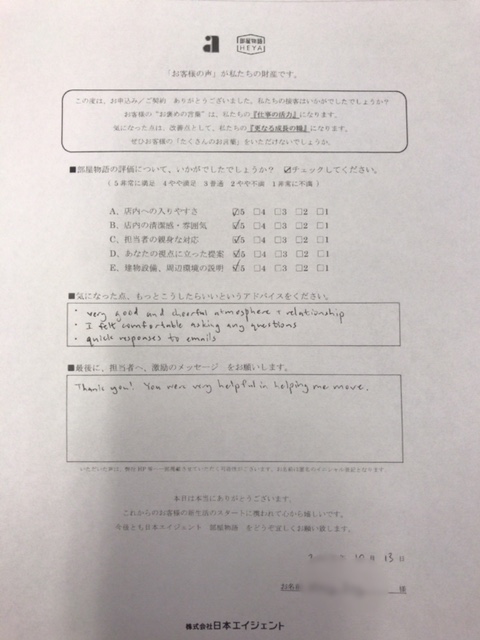 a
部屋物語
HEYA
「お客様の声」が私たちの財産です。
この度は、お申込み／ご契約 ありがとうございました。私たちの接客はいかがでしたでしょうか？
お客様の"お褒めの言葉"は、私たちの『仕事の活力』になります。
気になった点は、改善点として、私たちの『更なる成長の糧』になります。
ぜひお客様の「たくさんのお言葉」をいただけないでしょうか。
■部屋物語の評価について、いかがでしたでしょうか？ ☑チェックしてください。
（５非常に満足 ４やや満足 ３普通 ２やや不満 １非常に不満）
A、店内への入りやすさ ☑5 □4 □3 □2 □1
B、店内の清潔感・雰囲気 ☑5 □4 □3 □2 □1
C、担当者の親身な対応 ☑5 □4 □3 □2 □1
D、あなたの視点に立った提案 ☑5 □4 □3 □2 □1
E、建物設備、周辺環境の説明 ☑5 □4 □3 □2 □1
■気になった点、もっとこうしたらいいというアドバイスをください。
・ very good and cheerful atmosphere + relationship
・ I felt comfortable asking any questions
・ quick responses to emails
■最後に、担当者へ、激励のメッセージ をお願いします。
Thank you! You were very helpful in helping me move.
いただいた声は、弊社HP等へ一部掲載させていただく可能性がございます。お名前は匿名のイニシャル表記となります
本日は本当にありがとうございます。
これからのお客様の新生活のスタートに携われて心から嬉しいです。
今後とも日本エイジェント 部屋物語 をどうぞ宜しくお願い致します。
10 月 13 日
お名前 様
株式会社日本エイジェント